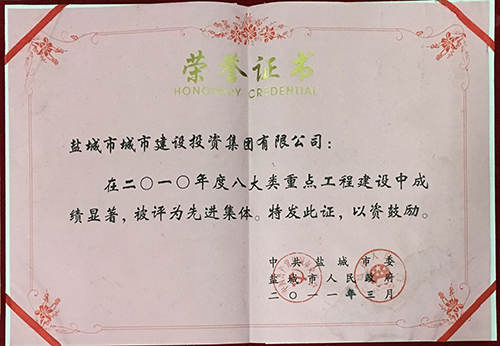 荣誉证书
HONORARY CREDENTIAL
盐城市城市建设投资集团有限公司：
在二〇一〇年度八大类重点工程建设中成
绩显著，被评为先进集体。特发此证，以资鼓励。
中共盐城市委
盐城市人民政府
二〇一一年三月